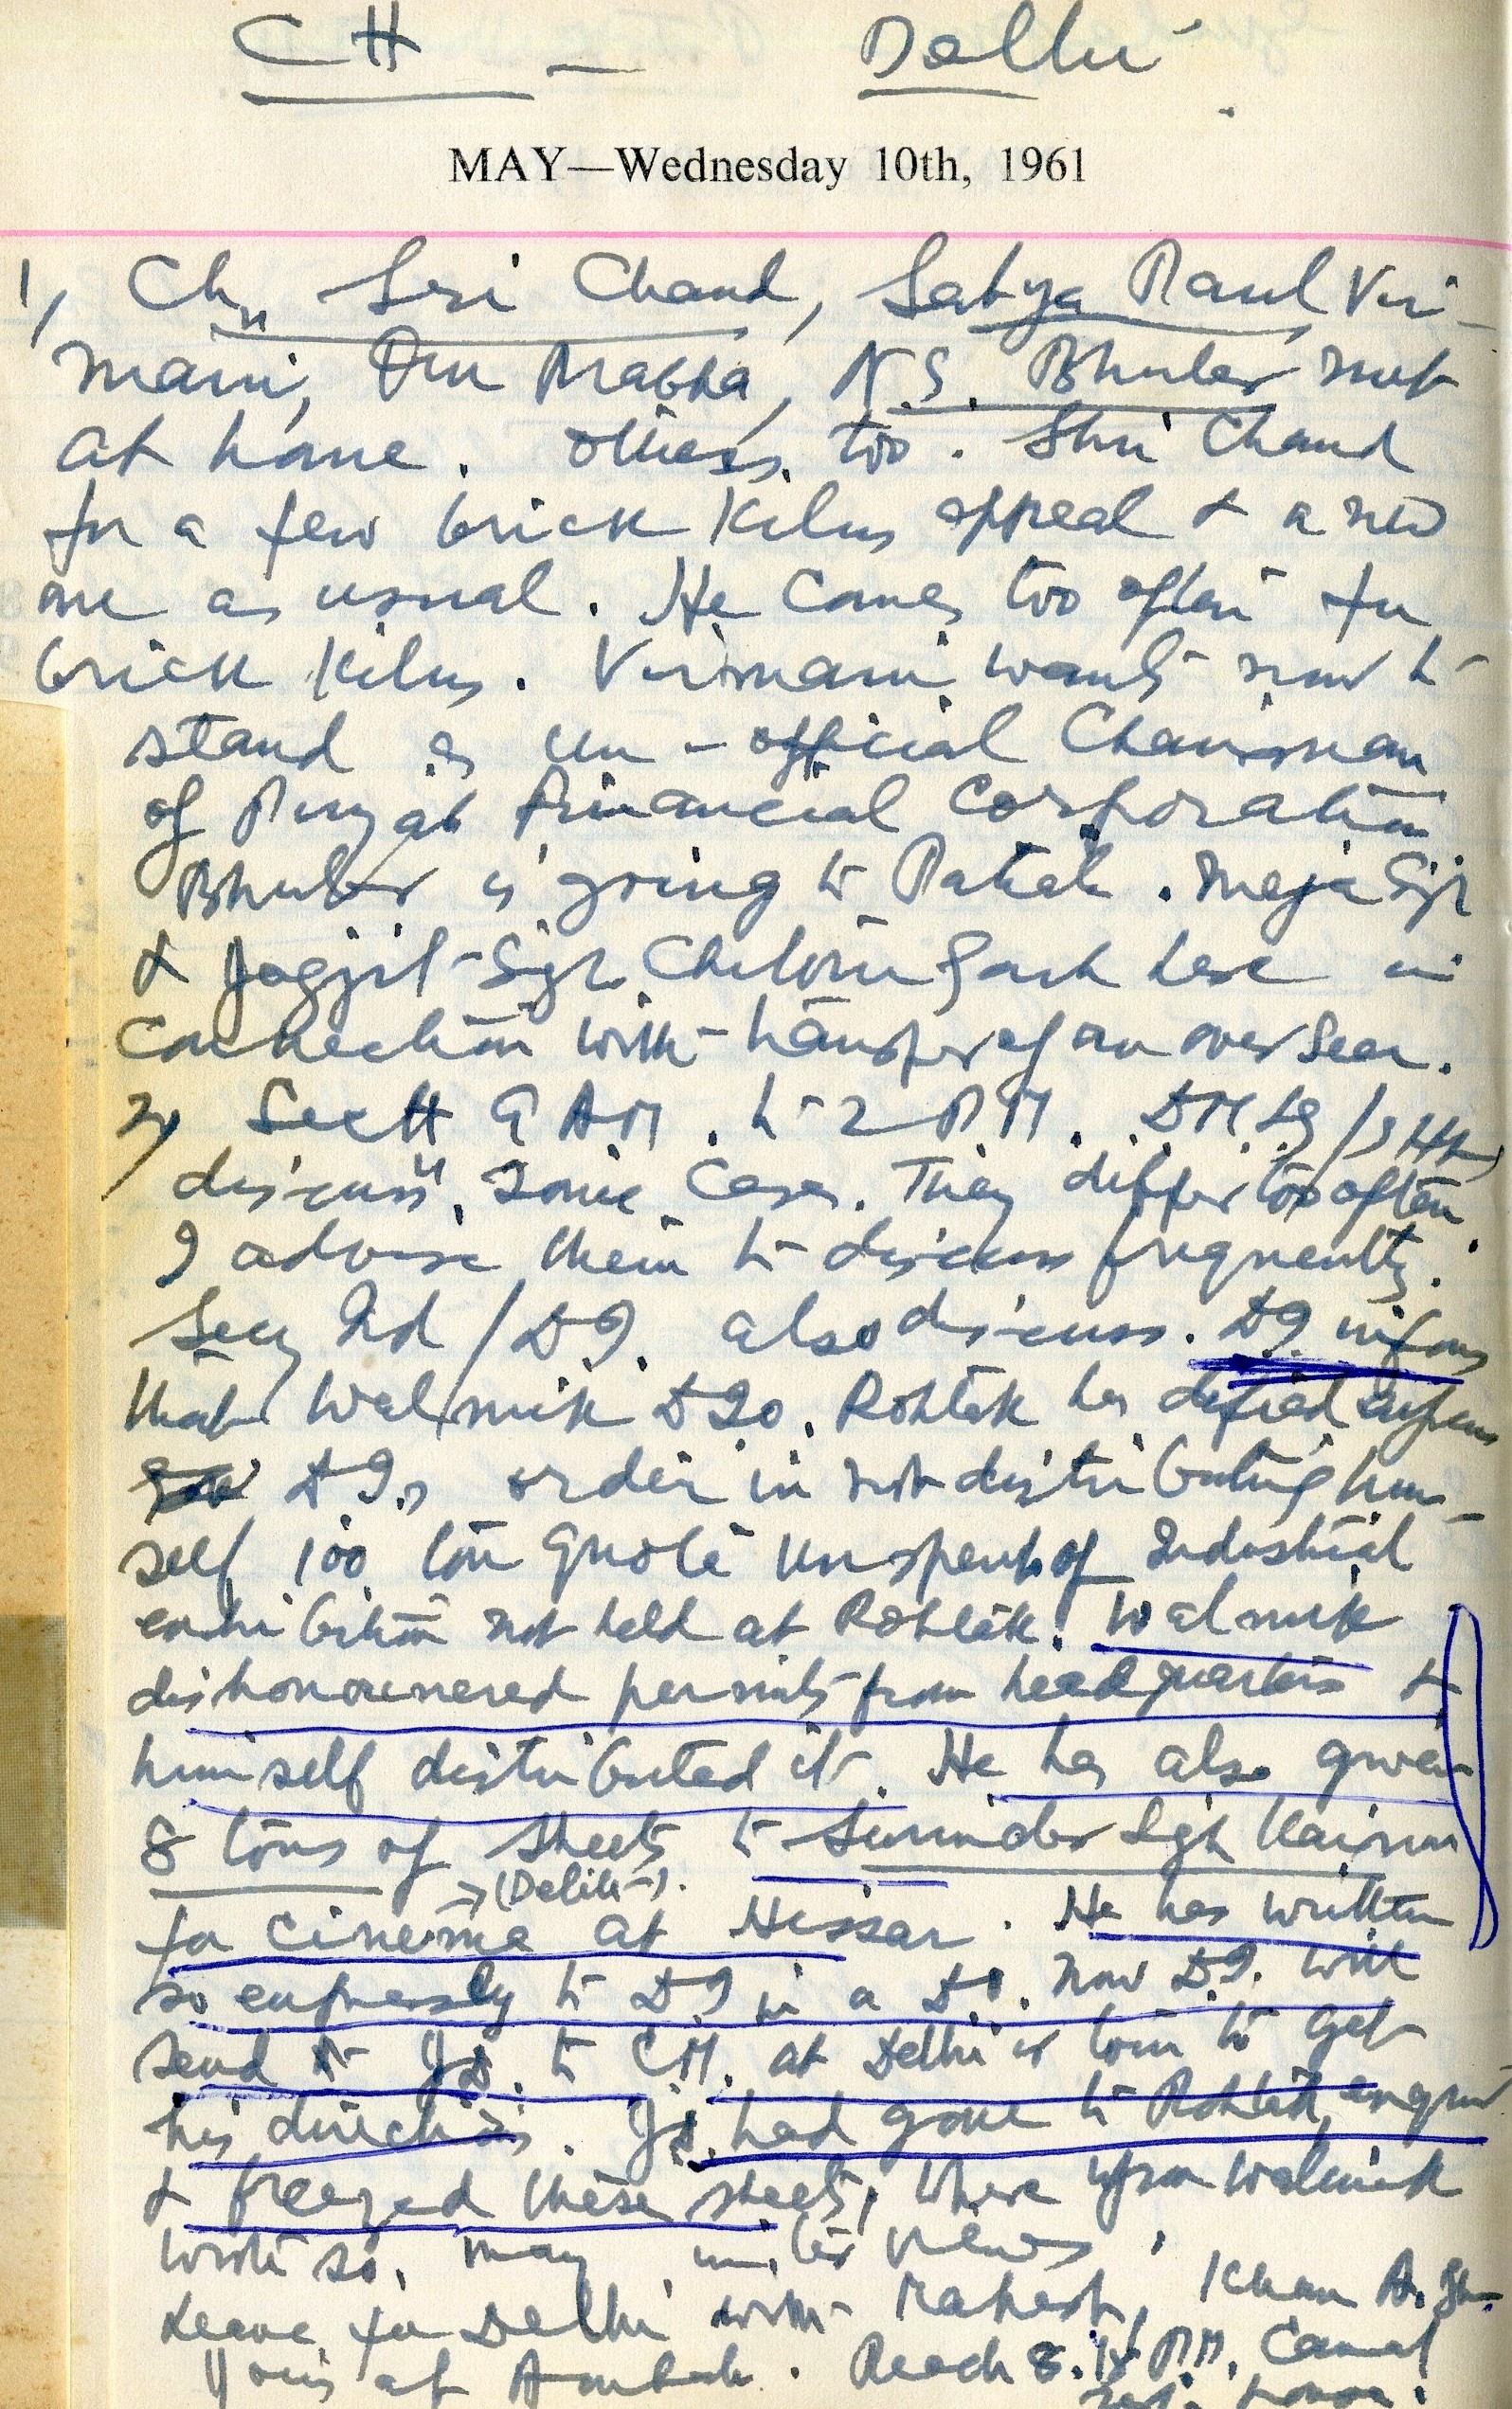 CH - Delhi
MAY—Wednesday 10th, 1961
1, Ch. Sri Chand, Satya Paul Vir-
mani, Om Prabha, N.S. Bhuler met
at home. Others too. Shri Chand
for a few brick kilns appeal & a new
one as usual. He comes too often for
brick kilns. Virmani wants now to
stand as un-official Chairman
of Punjab Financial Corporation
Bhuler is going to Patiala. Meja Sgh
& Jagjit Sgh here in
connection with transfer of an overseer.
2, Sectt 9 AM. to 2 P.M.
discuss some cases. They differ too often.
I advise them to discuss frequently.
Secy Ind/DI also discuss. DI informs
that Walmik DIO. Rohtak has defied
DI's order in not distributing him-
self 100 ton quota unspent of Industrial
exhibition not held at Rohtak. Walmik
dishonounered permits from headquarters &
himself distributed it. He has also given
8 tons of sheets to Surinder Sgh Kairon
(Delite).
for cinema at Hissar. He has written
so expressly to DI in a DO. Now DI. will
send it JD. to CM. at Delhi or tour to get
his directions. JD. had gone to Rohtak,
& freezed these sheets, where upon Walmik
wrote so. May views.
Leave for Delhi with Mahesh, Khan A.
Join at Ambala. Reach 8.15 PM. Canal